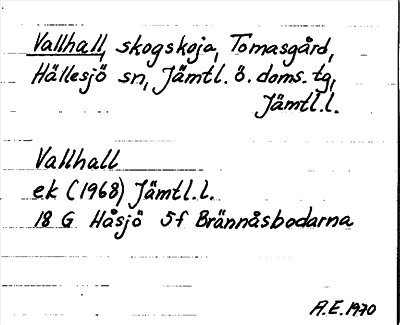 Vallhall, skogskoja, Tomasgård,
Hällesjö sn, Jämtl. ö. doms. tg,
Jämtl.l.
Vallhall
ek (1968) Jämtl.l.
18 G Håsjö 5f Brännåsbodarna
A.E. 1970